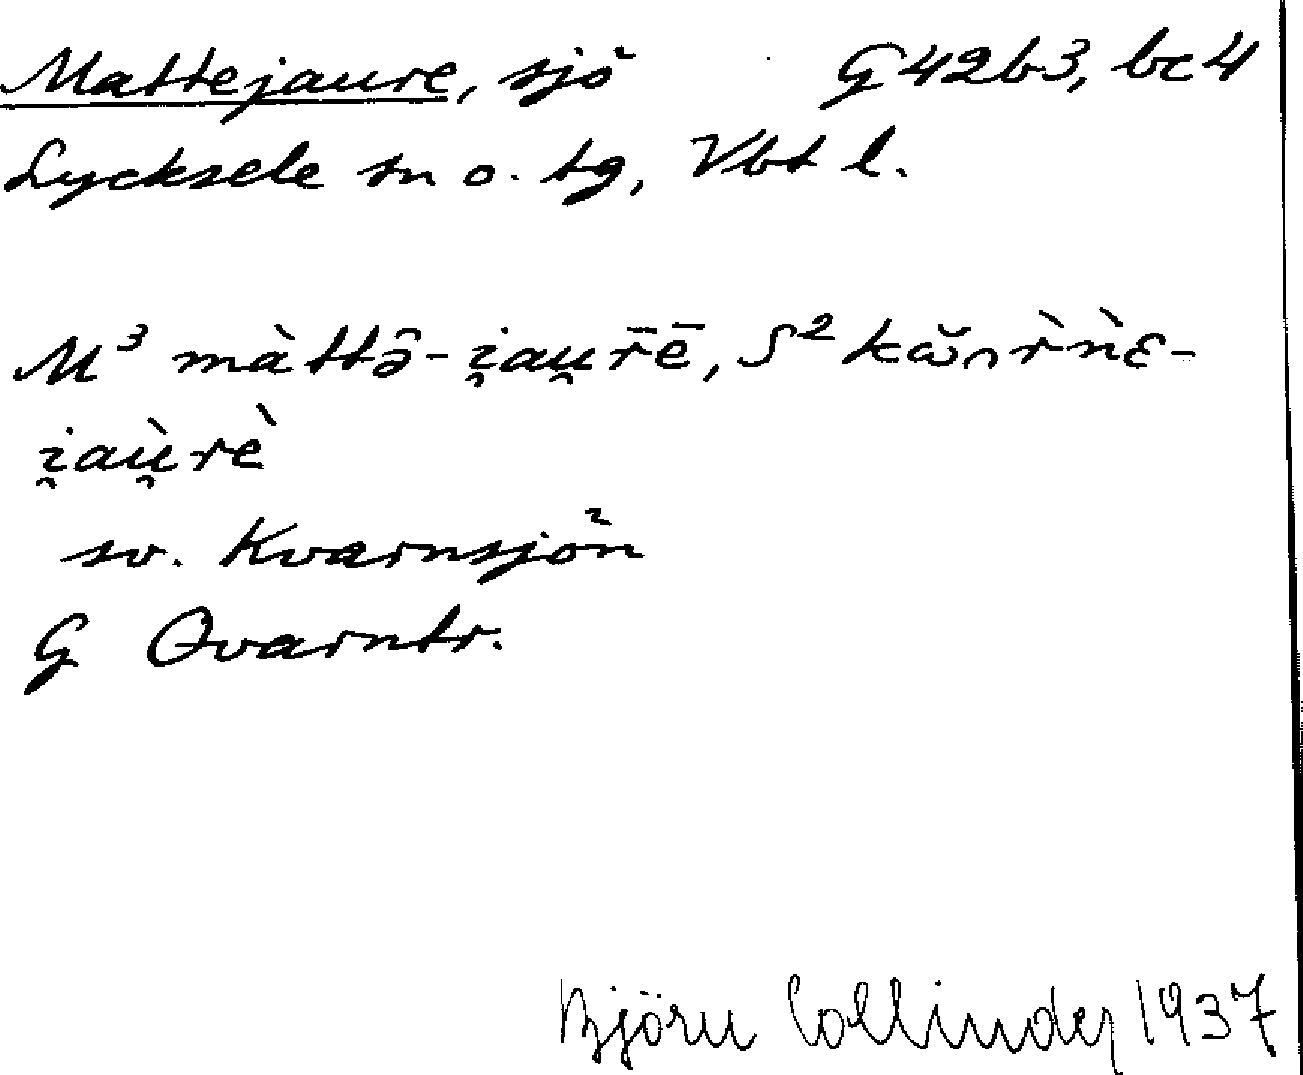 Mattejaure, sjö G42b3, bc4
Lycksele sn o. tg, Vbt l.
M³ màttə̑-i̯au̯r̄ē, S² kɷ̆ᴒr̀ǹɛ-
i̯aù̯rè
sv. Kvarnsjön
G Qvarntr.
Björn Collinder 1937